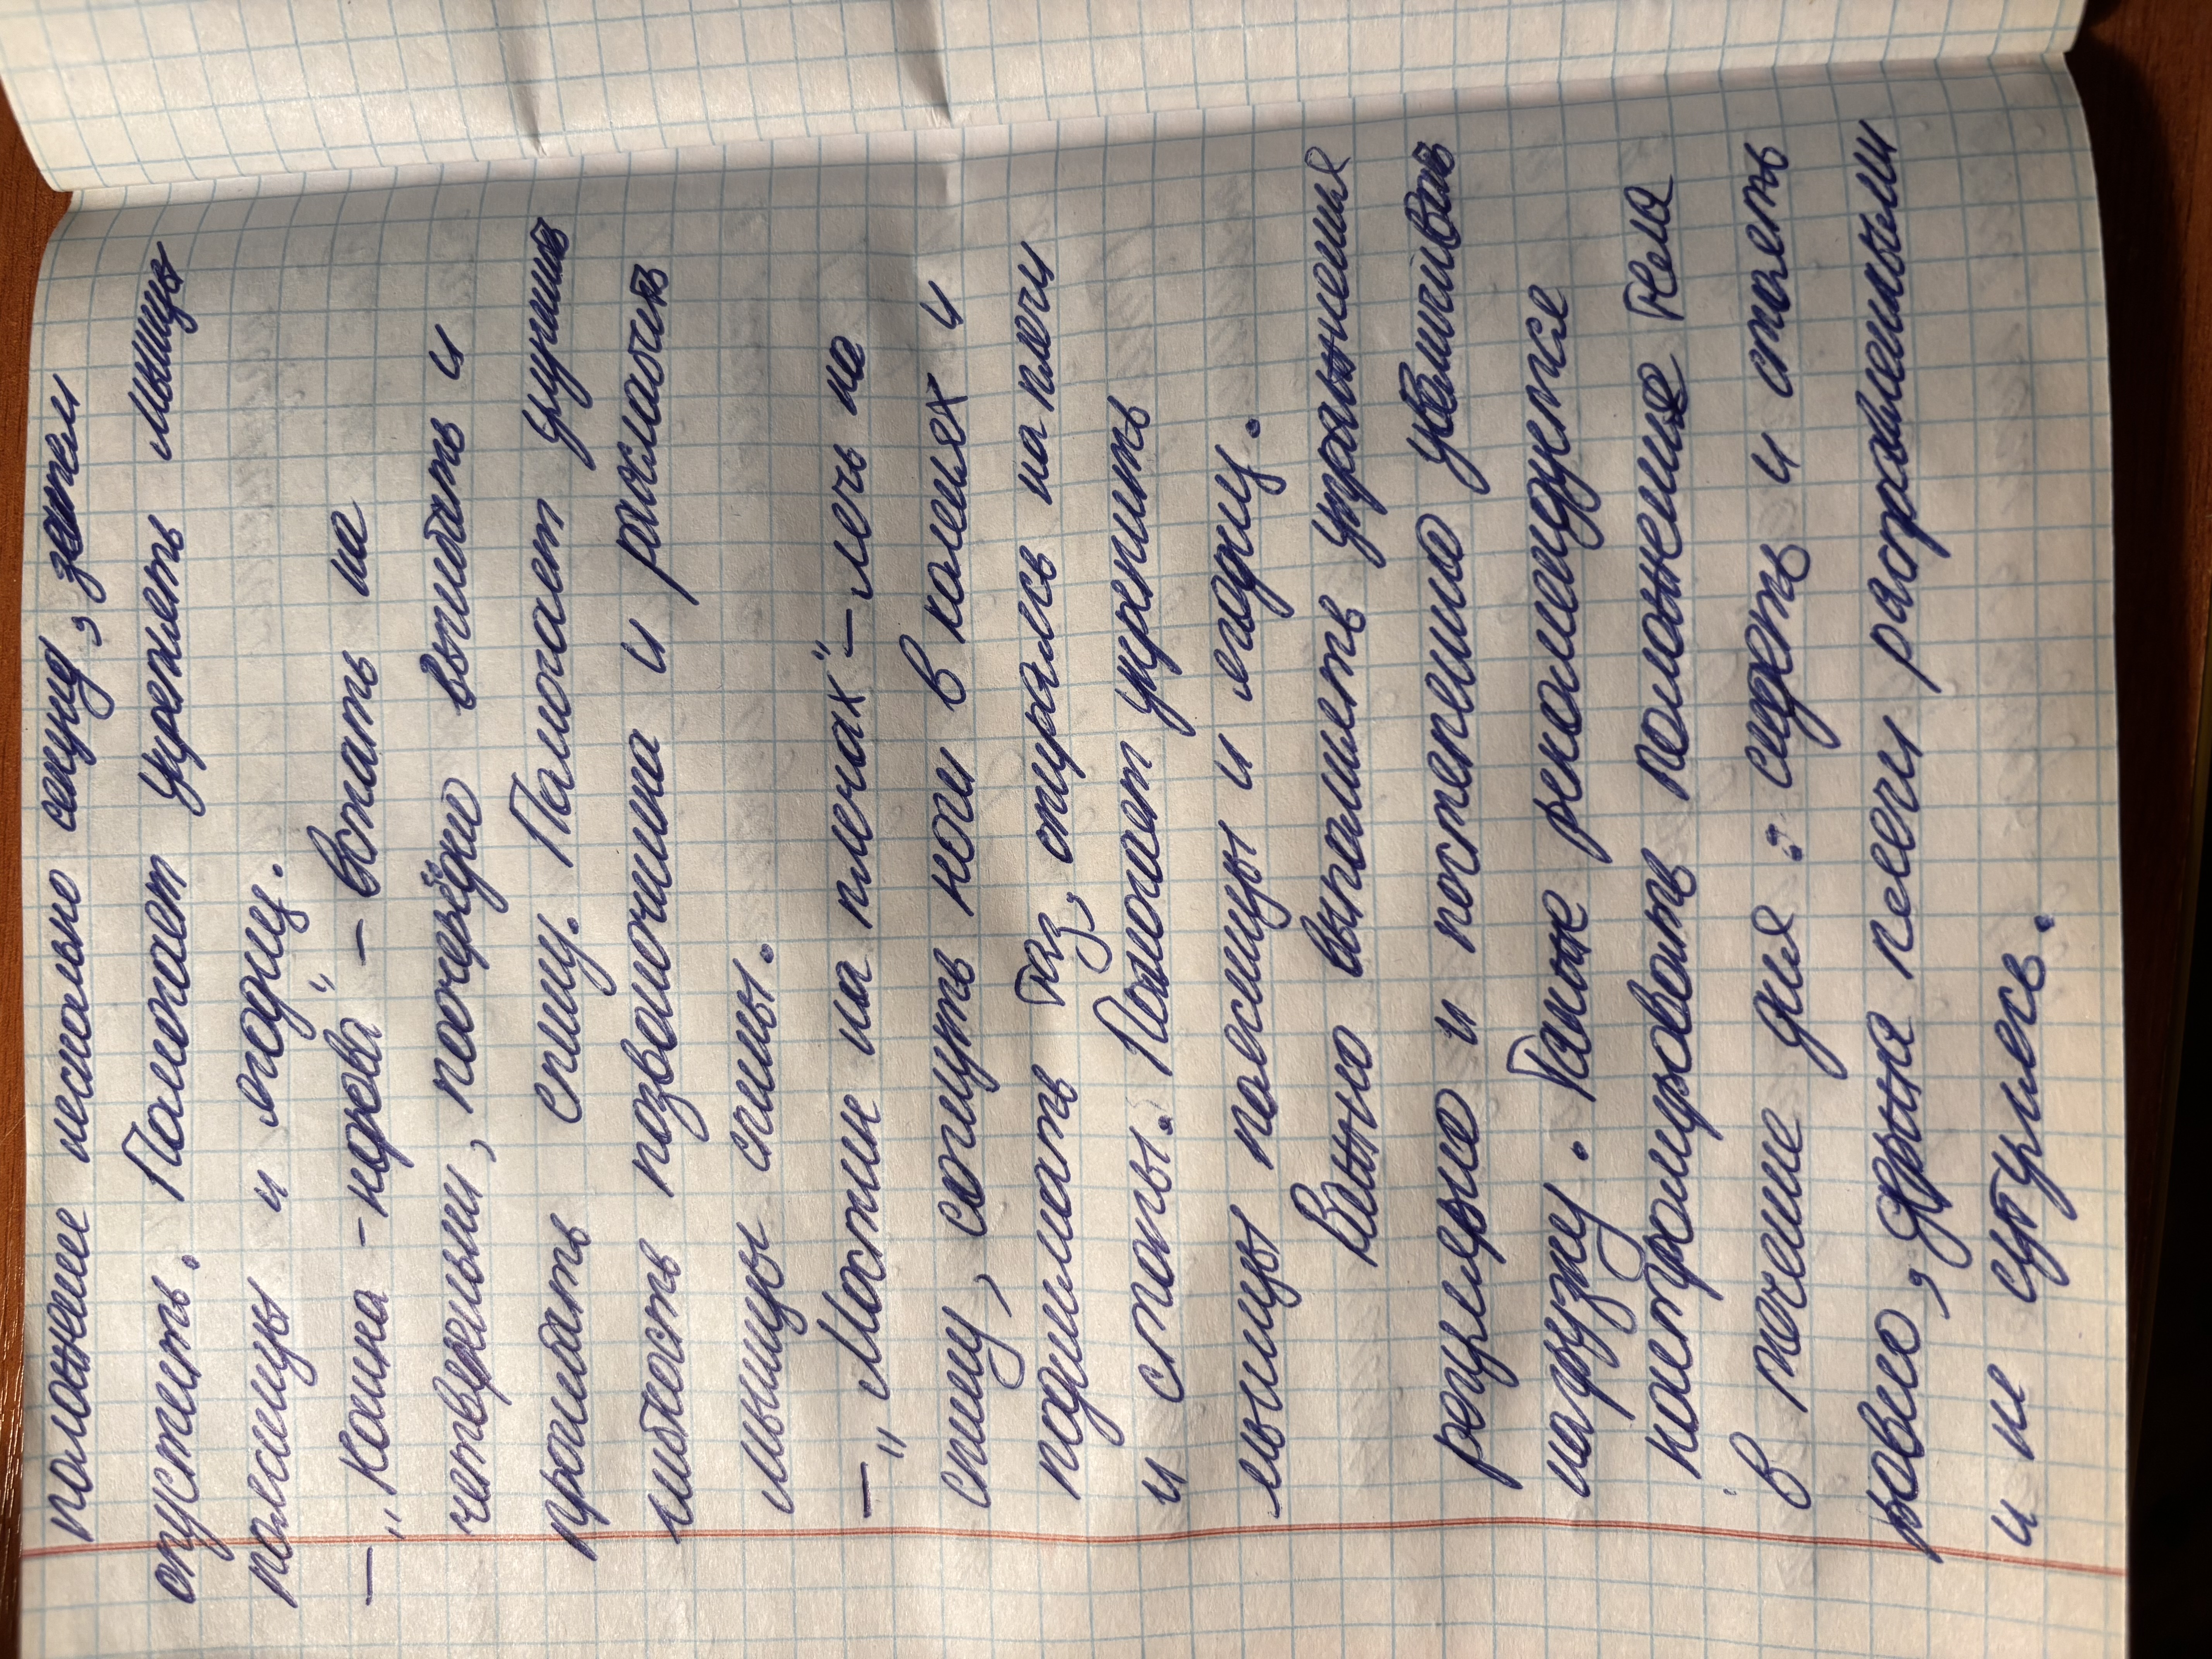 положение несколько секунд, затем
опустить. Помогает укрепить мышцы
поясницы и ягодиц.
– „Кошка – корова" – встать на
четвереньки, поочерёдно выгибать и
прогибать спину. Помогает улучшить
гибкость позвоночника и расслабить
мышцы спины.
– „Мостик на плечах" – лечь на
спину, согнуть ноги в коленях и
поднимать таз, опираясь на плечи
и стопы. Помогает укрепить
мышцы поясницы и ягодиц.
Важно выполнять упражнения
регулярно и постепенно увеличивать
нагрузку. Также рекомендуется
контролировать положение тела
в течение дня: сидеть и стоять
ровно, держа плечи расправленными
и не сутулясь.